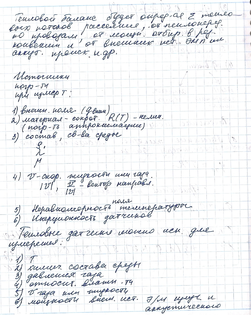 Тепловой баланс будет определ. Σ тепло-
вых потоков рассеяния, от теплопер.
по проводам, от мощн. отбир. в
и от внешних ист.
акуст. происх. и др.
Источники
погр-ти
при измер T:
1) внешн. поля
2) материал - сопрот. R(T) - нелин.
(погр-ть аппроксимации)
3) состав, св-ва среды
4) v - скор. жидкости или газа
|v|, v/|v| - вектор направл.
5) Неравномерность поля температуры
6) Инерционность датчиков
Тепловые датчики можно исп. для
измерения:
1) T
2) состава среды
3) давления газа
4) относит. влажн-ти
5) v газа или жидкость
6) мощности внеш. ист. Э/м излуч. и
акустического